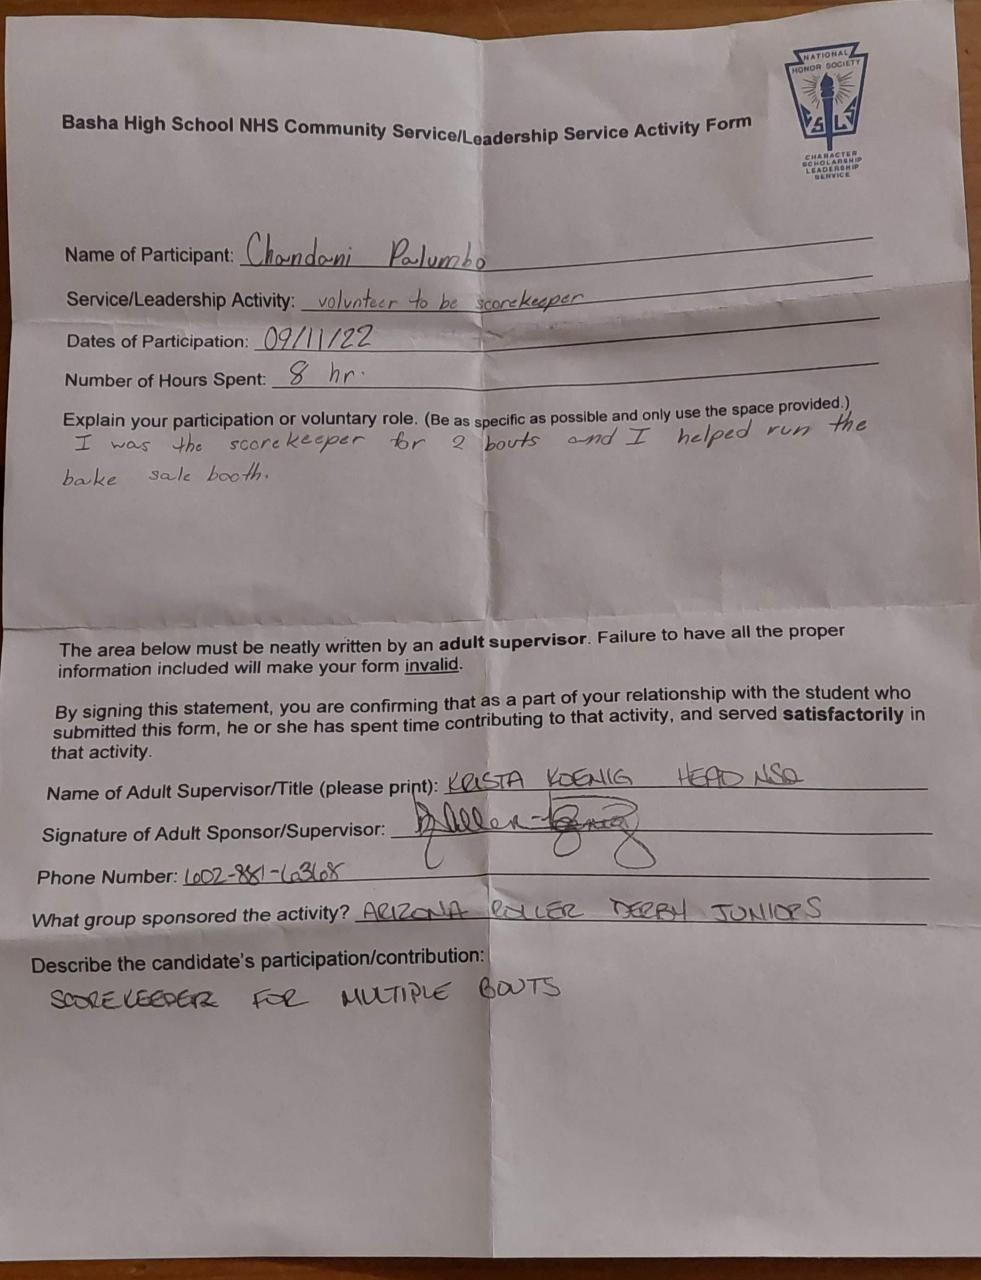 NATIONAL
HONOR SOCIETY
S L S
CHARACTER
SCHOLARSHIP
LEADERSHIP
SERVICE
Basha High School NHS Community Service/Leadership Service Activity Form
Name of Participant: Chandani Palumbo
Service/Leadership Activity: volunteer to be scorekeeper
Dates of Participation: 09/11/22
Number of Hours Spent: 8 hr.
Explain your participation or voluntary role. (Be as specific as possible and only use the space provided.)
I was the scorekeeper for 2 bouts and I helped run the
bake sale booth.
The area below must be neatly written by an adult supervisor. Failure to have all the proper
information included will make your form invalid.
By signing this statement, you are confirming that as a part of your relationship with the student who
submitted this form, he or she has spent time contributing to that activity, and served satisfactorily in
that activity.
Name of Adult Supervisor/Title (please print): KRISTA KOENIG HEAD NSO
Signature of Adult Sponsor/Supervisor:
Phone Number: 602-881-6368
What group sponsored the activity? ARIZONA ROLLER DERBY JUNIORS
Describe the candidate's participation/contribution:
SCOREKEEPER FOR MULTIPLE BOUTS